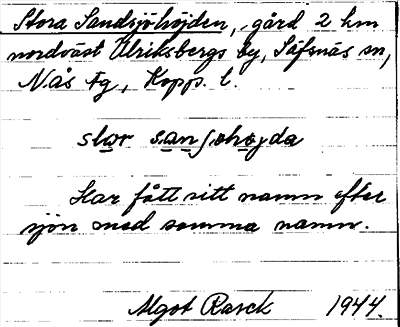 Stora Sandsjöhöjden, gård 2 km
nordväst Ulriksbergs by, Säfsnäs sn,
Nås tg, Kopp. l.
stor san ʃøhøyda
Har fått sitt namn efter
sjön med samma namn.
Algot Rasck 1944.